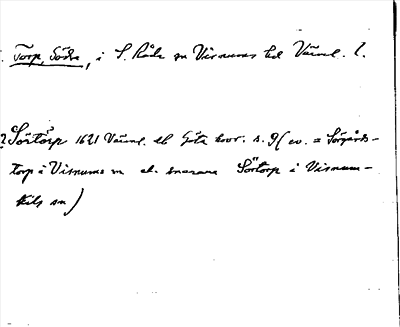 Torp, Södra, i S. Råda sn Visnums hd Värml. l.
? Sörtorp 1621 Värml. lb Göta hovr. s. 9 (ev. = Sörgårds-
torp i Visnums sn el. snarare Sörtorp i Visnum-
kils sn)